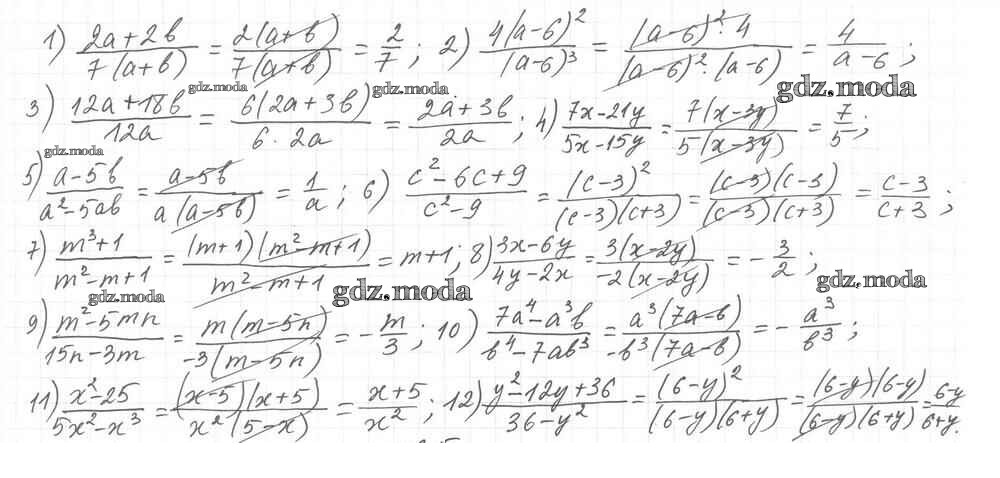 1) (2a+2b)/(7(a+b)) = (2(a+b))/(7(a+b)) = 2/7; 2) (4(a-6)²)/((a-6)³) = ((a-6)²·4)/((a-6)²·(a-6)) = 4/(a-6);
gdz.moda gdz.moda gdz.moda
3) (12a+18b)/(12a) = (6(2a+3b))/(6·2a) = (2a+3b)/(2a); 4) (7x-21y)/(5x-15y) = (7(x-3y))/(5(x-3y)) = 7/5;
gdz.moda
5) (a-5b)/(a²-5ab) = (a-5b)/(a(a-5b)) = 1/a; 6) (c²-6c+9)/(c²-9) = ((c-3)²)/((c-3)(c+3)) = ((c-3)(c-3))/((c-3)(c+3)) = (c-3)/(c+3);
7) (m³+1)/(m²-m+1) = ((m+1)(m²-m+1))/(m²-m+1) = m+1; 8) (3x-6y)/(4y-2x) = (3(x-2y))/(-2(x-2y)) = -3/2;
gdz.moda gdz.moda gdz.moda
9) (m²-5mn)/(15n-3m) = (m(m-5n))/(-3(m-5n)) = -m/3; 10) (7a⁴-a³b)/(b⁴-7ab³) = (a³(7a-b))/(-b³(7a-b)) = -a³/b³;
11) (x²-25)/(5x²-x³) = ((x-5)(x+5))/(x²(5-x)) = (x+5)/x²; 12) (y²-12y+36)/(36-y²) = ((6-y)²)/((6-y)(6+y)) = ((6-y)(6-y))/((6-y)(6+y)) = (6-y)/(6+y).